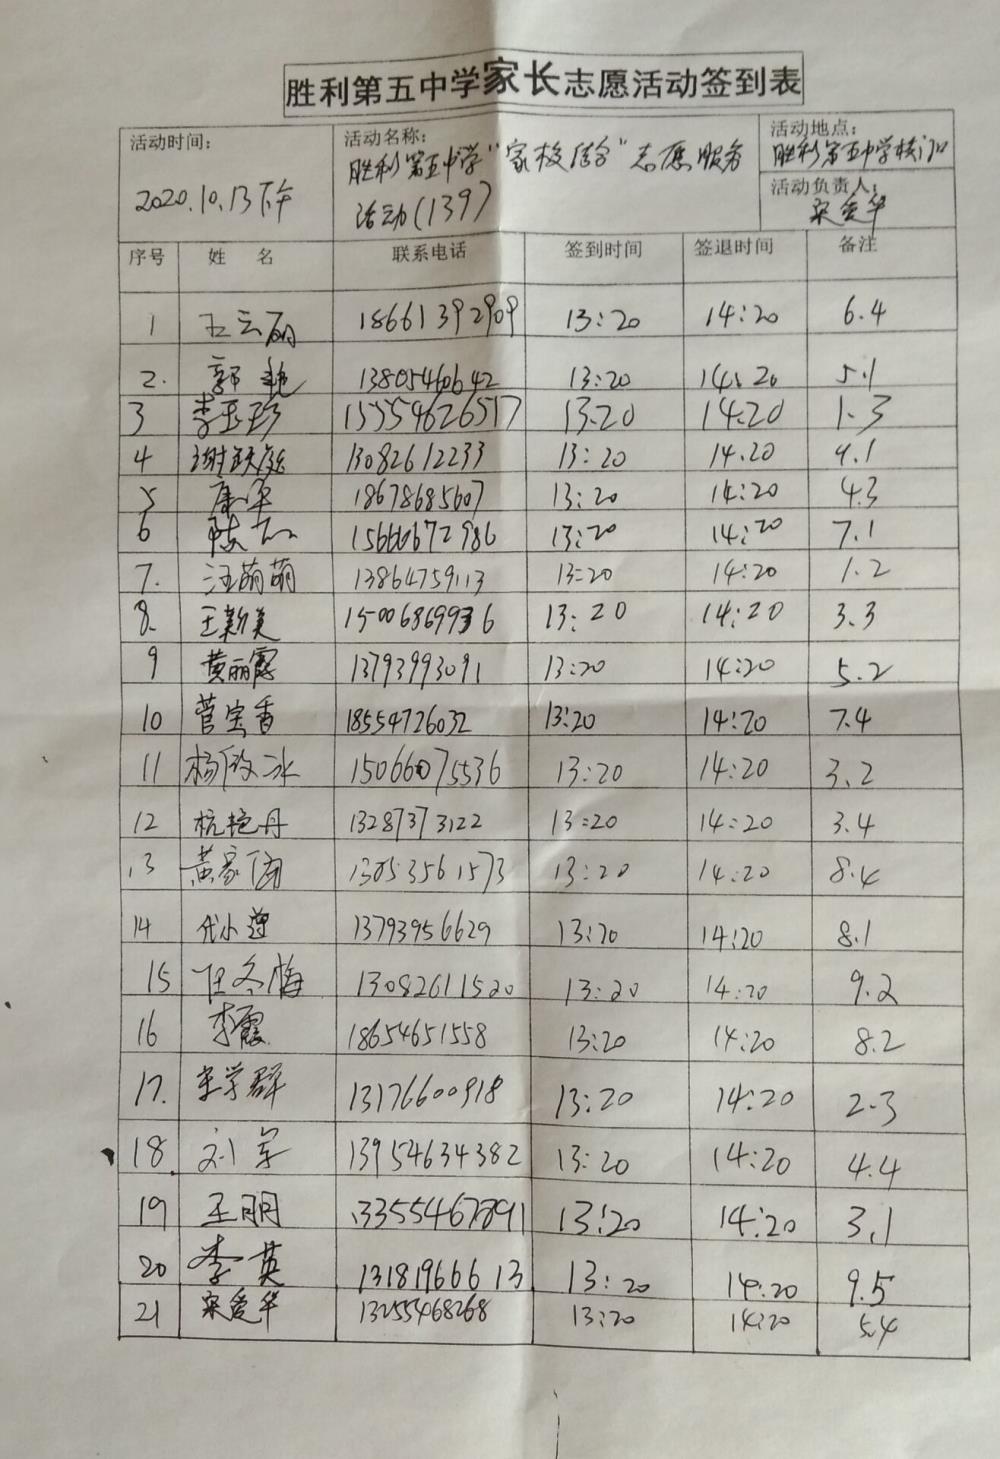 胜利第五中学家长志愿活动签到表
活动时间: 2020.10.13下午
活动名称: 胜利第五中学"家校结合"志愿服务
活动(139)
活动地点: 胜利第五中学校门口
活动负责人: 宋爱华
序号 姓 名 联系电话 签到时间 签退时间 备注
1 王云丽 18661392909 13:20 14:20 6.4
2. 郭艳 13805460642 13:20 14:20 5.1
3 李玉珍 15554626517 13:20 14:20 1.3
4 13082612233 13:20 14.20 4.1
5 康华 18678685607 13:20 14:20 4.3
6 陈 15660672986 13:20 14:20 7.1
7. 汪萌萌 13864759113 13:20 14:20 1.2
8. 王新美 15006869936 13:20 14:20 3.3
9 黄丽霞 13793993091 13:20 14:20 5.2
10 菅宝香 18554726032 13:20 14:20 7.4
11 杨 冰 15066075536 13:20 14:20 3.2
12 杭艳丹 13287373122 13:20 14:20 3.4
13 黄家 13053561573 13:20 14:20 8.4
14 代小莲 13793956629 13:20 14:20 8.1
15 任冬梅 13082611520 13:20 14:20 9.2
16 李霞 18654651558 13:20 14:20 8.2
17. 宋学群 13176600918 13:20 14:20 2.3
18. 刘军 13954634382 13:20 14:20 4.4
19 王丽 13355467891 13:20 14:20 3.1
20 李英 13181966613 13:20 14:20 9.5
21 宋爱华 13255468268 13:20 14:20 5.4